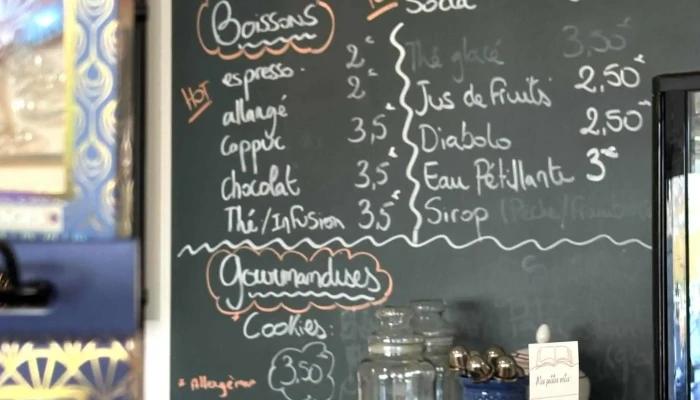 Boissons
HOT
espresso 2€
allongé 2€
cappuc 3,5€
chocolat 3,5€
Thé/Infusion 3,5€
Soda
Thé glacé 3,50€
Jus de Fruits 2,50€
Diabolo 2,50€
Eau Pétillante 3€
Sirop (Pêche/
gourmandises
* Cookies:
3,50€